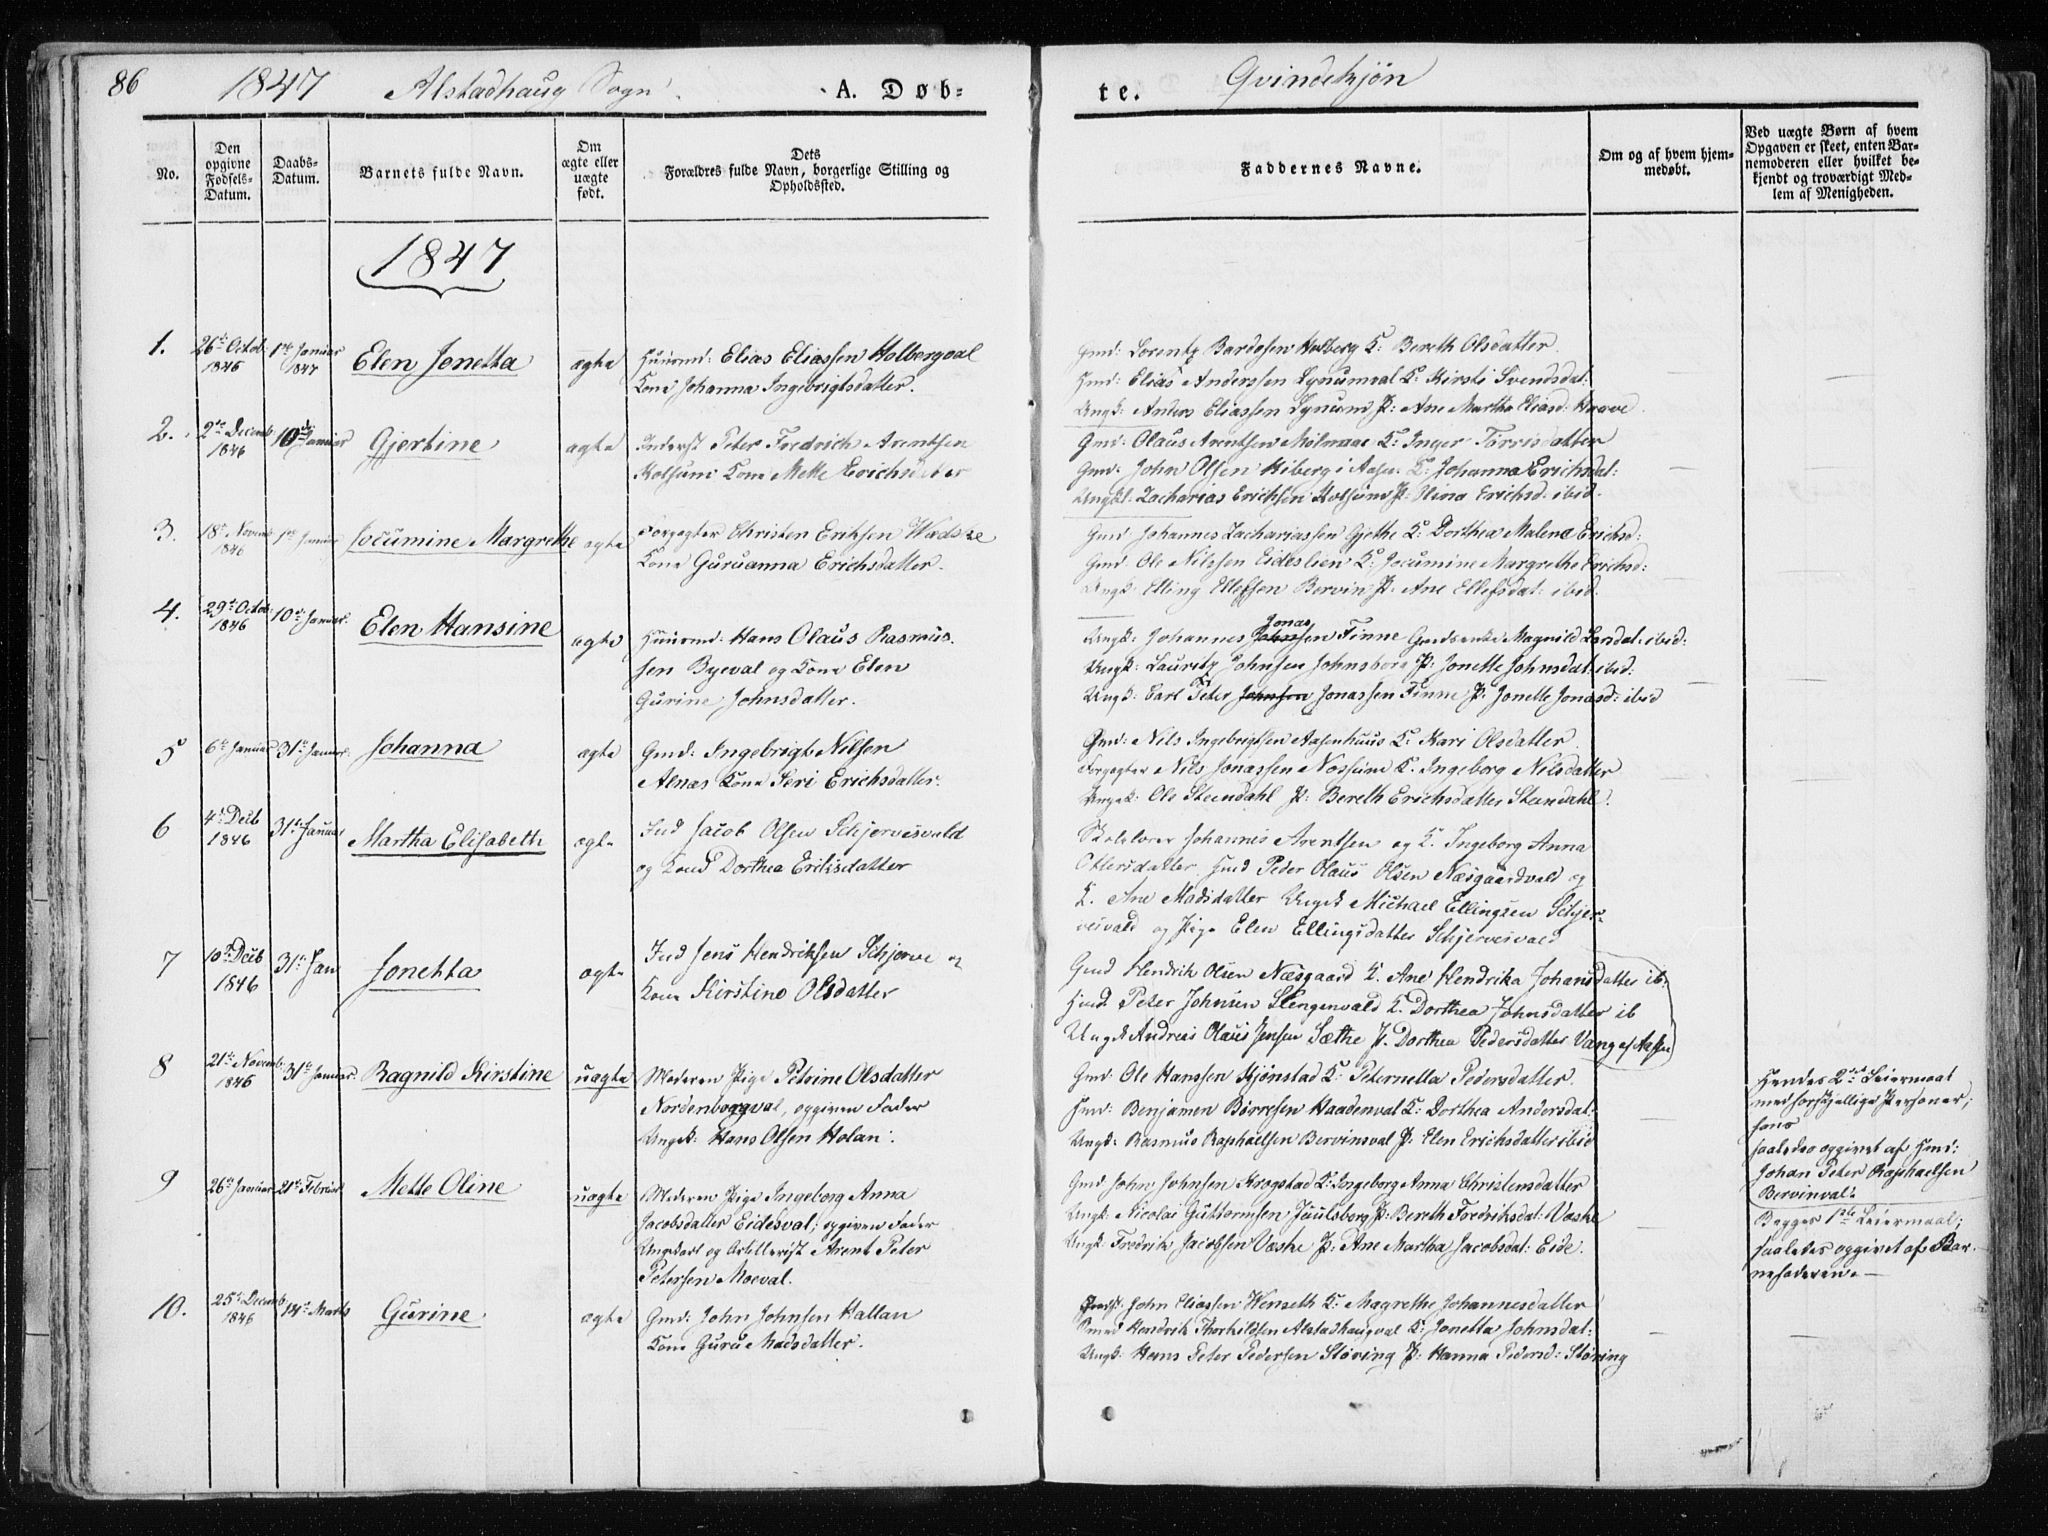 86 1847 Alstadhaug Sogn. A. Døb-
te. Qvindekjön
No.
Den opgivne Fødsels-Datum.
Daabs-Datum.
Barnets fulde Navn.
Om ægte eller uægte født.
Dets Forældres fulde Navn, borgerlige Stilling og Opholdssted.
Faddernes Navne.
Om og af hvem hjem-medøbt.
Ved uægte Børn af hvem Opgaven er skeet, enten Bar-nemoderen eller hvilket be-kjendt og troværdigt Med-lem af Menigheden.
1847
1. 26de Octob: 1846 1ste Januar 1847 Elen Jonetta ægte
Huusmd: Elias Eliassen Holbergval
Kone Johanna Ingebrigtsdatter.
Gmd: Lorentz Bardosen Holberg K: Bereth Olsdatter.
Hmd: Elias Anderssen Lynumval K: Kirsti Svendsdat:
Ungk: Anders Eliassen Lynum P: Ane Martha Eliasd: Haave
2. 2de Decemb 1846 10de Januar Gjertine ægte
Inderst Peter Fredrich Arentsen
Holsum Kone Mette Erichsdatter
Gmd: Olaus Arentsen Molmaae K: Inger Torrisdatter
Gmd: John Olsen Kiberg i Aasen K: Johanna Erichsdat:
Ungkl: Zacharias Erichsen Holsum P: Olina Erichsd: ibid.
3. 18de Novemb 1846 1ste Januar Jocumine Margrethe ægte
Forpagter Christen Eriksen Wadske
Kone Guruanna Erichsdatter.
Gmd: Johannes Zachariassen Gjethe K: Dorthea Malena Erichsd:
Gmd. Ole Nilssen Eideslien K: Jocumine Margrethe Erichsd:
Ungk: Elling Ellefsen Bervin P: Ane Ellefsdat: ibid.
4. 29de Octob: 1846 10de Januar. Elen Hansine ægte
Huusmd: Hans Olaus Rasmus-
sen Byeval og Kone Elen
Gurine Johnsdatter.
Jonas
Ungk: Johannes Johnsen Finne Magnild ibid:
Ungk: Lauritz Johnsen Johnsborg P: Jonette Johnsdat: ibid:
Ungk: Carl Peter Johnsen Jonassen Finne P: Jonette Jonasd: ibid
5 6te Januar 31te Januar. Johanna ægte
Gmd: Ingebrigt Nilsen
Alnas Kone Seri Erichsdatter.
Gmd: Nils Ingebrigtsen Aasenhuus K: Kari Olsdatter.
Forpagter Nils Jonassen Nossum K. Ingeborg Nilsdatter
Ungk: Ole Steendahl P: Bereth Erichsdatter Steendahl.
6 4de Decb 1846 31te Januar Martha Elisabeth ægte
Ind Jacob Olsen Schjervesvald
og Kone Dorthea Eriksdatter
Skolelærer Johannes Arentsen og K. Ingeborg Anna
Ottersdatter. Hmd Peder Olaus Olsen Næsgaardvald og
K. Ane Madsdatter Ungk Michael Ellingsen Schjer-
vesvald og Pige Elen Ellingsdatter Schjervesvald
7 10de Decb 1846 31te Jan Jonetta ægte
Ind Jens Hendriksen Schjerve og
Kone Kirstine Olsdatter
Gmd Hendrik Olsen Næsgaard K. Ane Hendrika Johansdatter ib.
Hmd Peter Johnsen Slengesvald K. Dorthea Johnsdatter ib
Ungk Andreas Olaus Jensen Sæthe P. Dorthea Pedersdatter Vang af Aasen
8 21de Novemb: 1846 31te Januar. Ragnild Kirstine uægte
Moderen Pige Petrine Olsdatter
Nordenborgval, opgiven Fader
Ungk: Hans Olsen Holan.
Gmd: Ole Hanssen Kjönstad K: Peternella Pedersdatter.
Hmd: Benjamen Börresen Haadenval K: Dorthea Andersdat:
Ungk: Rasmus Raphaelsen Bervinsval P: Elen Erichsdatter ibid
Hendes 2det Leiermaal
med forskjellige Personer;
hans
saaledes opgivet af Hmd:
Johan Peter Raphaelsen
Bervinval.
9 26de Januar 21de Februar Mette Oline uægte
Moderen Pige Ingeborg Anna
Jacobsdatter Eidesval; opgiven Fader
Ungkarl og Artillerist Arent Peter
Petersen Moeval.
Gmd John Johnsen Krogstad K: Ingeborg Anna Christensdatter
Ungk: Nicolai Guttormsen Juulsborg P: Bereth Fredriksdat: Vaske
Ungk: Fredrik Jacobsen Vaske P: Ane Martha Jacobsdat: Eide.
Begges 1ste Leiermaal;
saaledes opgivet af Bar-
nefaderen.
10. 25de Decemb 1846 14de Marts Gurine ægte
Gmd: John Johnsen Hallan
Kone Guru Madsdatter.
John Eliassen Wenseth K: Magrethe Johannesdatter
Smed Hendrik Thorkildsen Alstadhaugval K: Jonetta Johnsdat:
Ungk: Hans Peter Pedersen Stöving P: Hanna Pedersd: Stöving